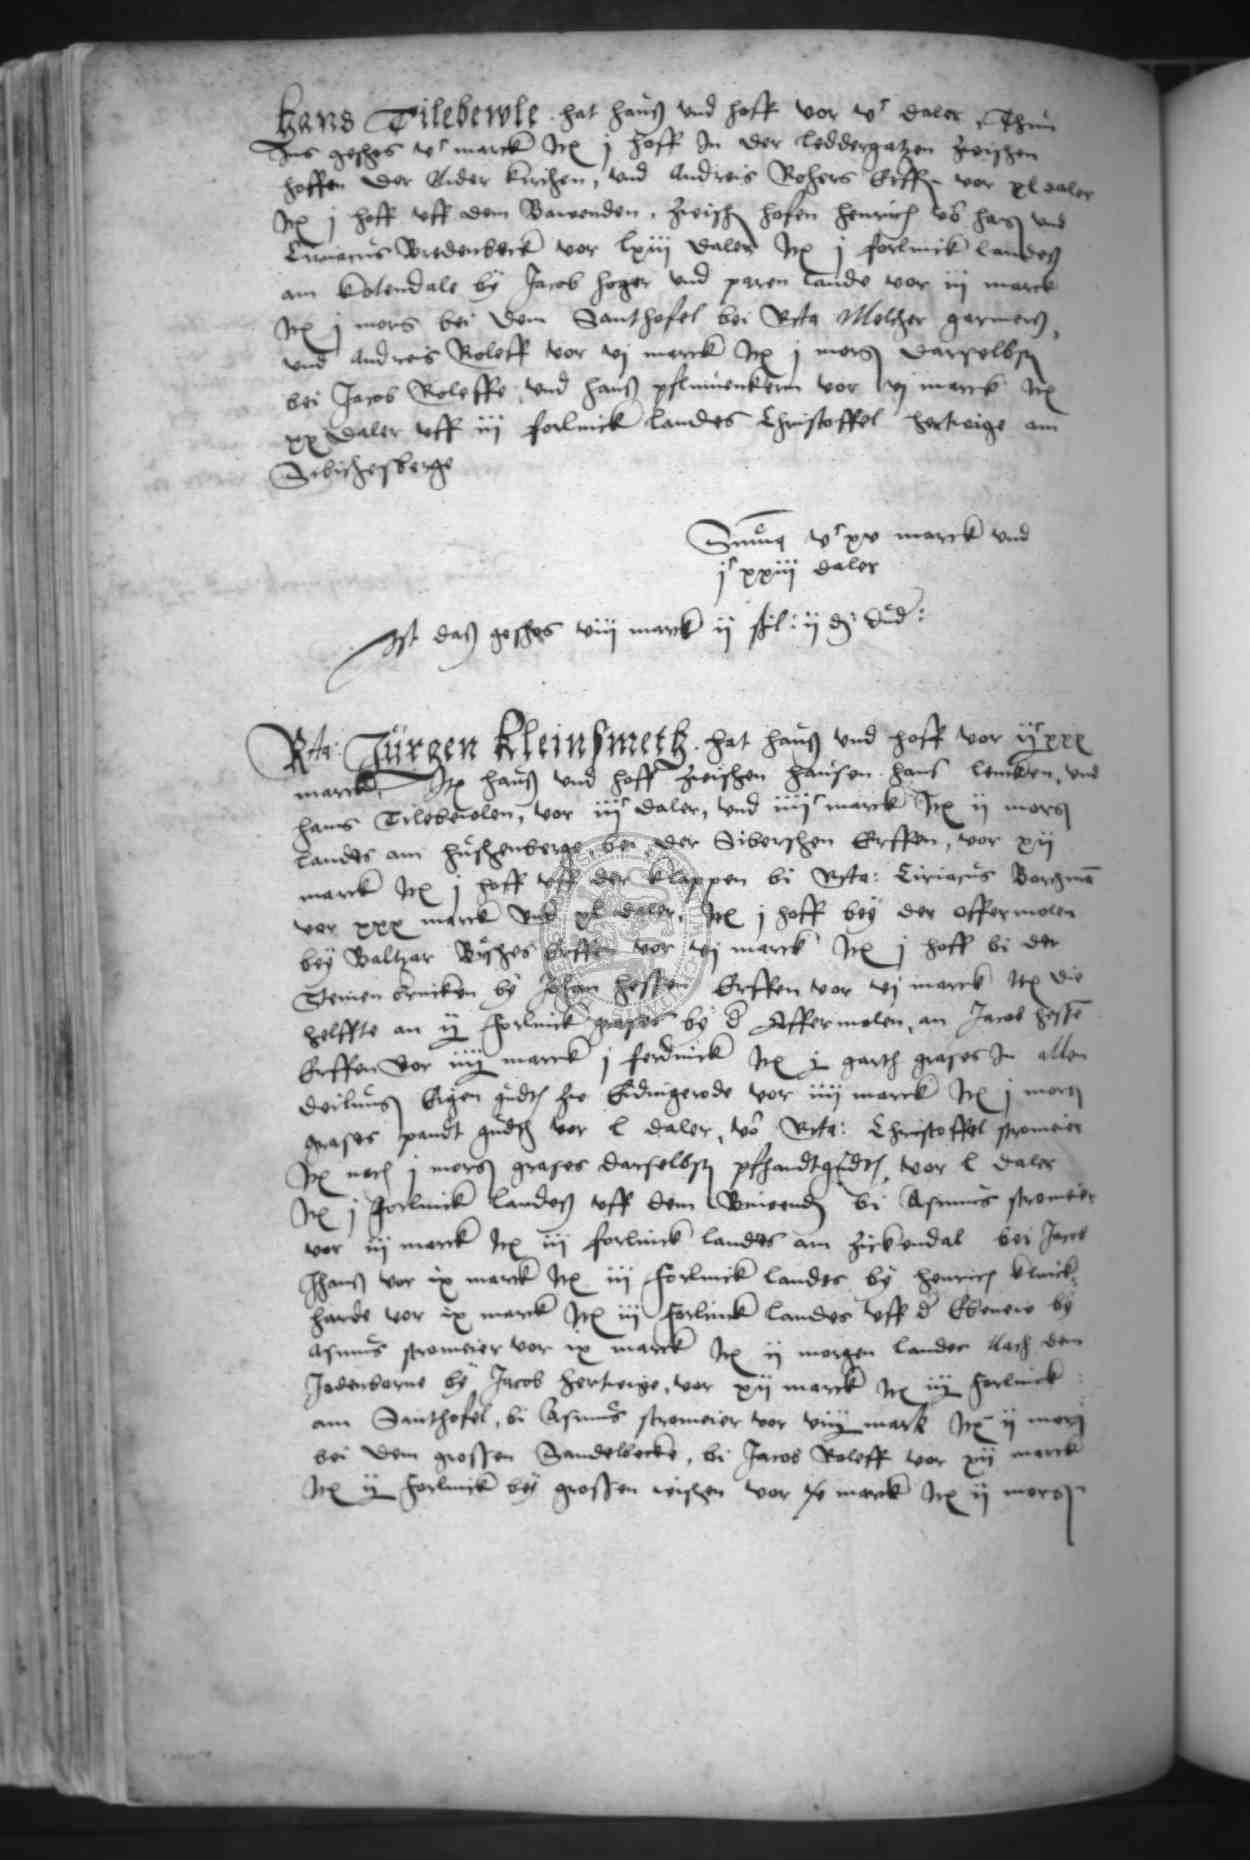 Hans Tilebewle hat hauß vnd hoff vor vc daler, Thun
Ins geschos vc marck Itē j hoff In der leddergatzen zwischen
hoffen der Vider kirchen, vnd Andreis Rohers Erffn vor xl daler
Itē j hoff vff dem Bawenden, zwischn hofen henrich vō hagn vnd
Ciriacus Bredenbeck vor lxiii daler Itē j forlinck landeß
am kolendale by Jacob hoger vnd paren lande vor iij marck
Itē j morg bei dem Santhofel bei Rtā Melcher garmerß,
vnd Andreis Roleff vor vj marck Itē j morgn darselbst
bei Jacob Roleffs, vnd hanß pflumenkern vor vj marck Itē
xx daler vff iij forlinck landes Christoffel hertwige am
Sibichesberge
Summa vc xv marck vnd
jc xxiij daler
Ist daß geschos viij marck ij ßl: ij d
Rtā: Jürgen Kleinsmeth hat hauß vnd hoff vor ijc xxx
marck, Itē hauß vnd hoff zwischen hausen hans lemken, vnd
hans Tilebewlen, vor iijc daler, vnd iiijc marck Itē ij morgn
landes am huschenberge, bei der Siberschen Erffen, vor xij
marck Itē j hoff vff der klappen bi Rtā: Ciriacus Borgmā
vor xxx marck vnd xl daler, Itē j hoff bey der offermolen
bey Baltzar Bysches Erffen vor vj marck Itē j hoff bi der
Steinen brucken by Johan hessen Erffen vor vj marck Itē die
helffte an ij forlinck grases by d Affermolen, an Jacob hessē
Erffen vor iiij marck j ferdinck Itē j garth grases In allen
deilung Eigen gudt zu Eidingerode vor iiij marck Itē j morgn
grases pandt gudth vor l daler, vō Rtā: Christoffel stromeier
Itē noch j morgn grases darselbst pfhandtgudt, vor l daler
Itē j forlinck landeß vff dem Bawendn bi Asmus stromeier
vor iij marck Itē iij forlinck landes am zickendal bei Jacob
hanß vor ix marck Itē iij forlinck landes by henrich klinck-
harde vor ix marck Itē iij forlinck landes vff d Ebenewe by
Asmus stromeier vor ix marck Itē ij morgen landes nach dem
Jodenborne by Jacob hertwige, vor xij marck Itē iij forlinck
am Santhofel, bi Asmus stromeier vor viij mark Itē ij morg
bei dem grossen Sandelbecke, bi Jacob Roleff vor xij marck
Itē ij forlinck bey grossen wischen vor x marck Itē ij morgn